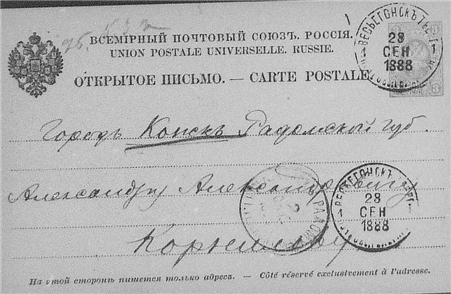 ВСЕМІРНЫЙ ПОЧТОВЫЙ СОЮЗЪ. РОССІЯ.
UNION POSTALE UNIVERSELLE. RUSSIE.
ОТКРЫТОЕ ПИСЬМО. — CARTE POSTALE
ВЕСЬЕГОНСКЪ
28
СЕН
1888
Городъ Конскъ Радомской губ.
Александру Александровичу
ВЕСЬЕГОНСКЪ
28
СЕН
1888
На этой сторонѣ пишется только адресъ. — Côté réservé exclusivement à l'adresse.